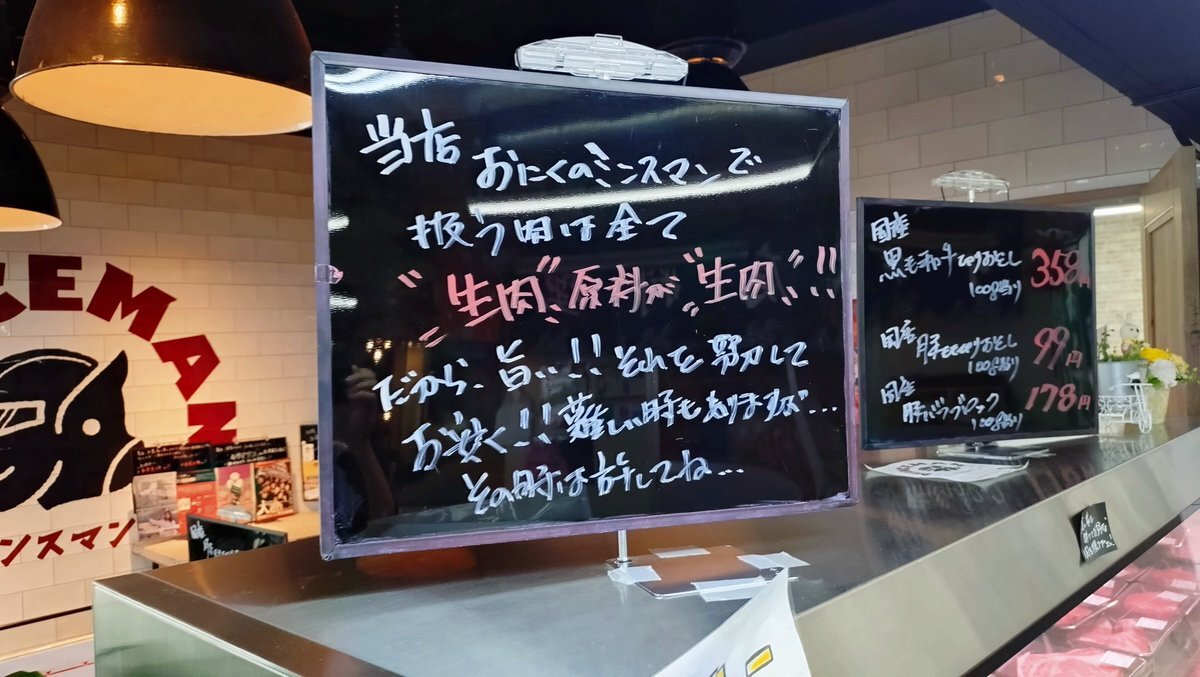 当店 おにくのミンスマンで
扱う肉は全て
"生肉"原料が"生肉"!!
だから、旨い!!それを努力して
お安く!!難しい時もありますが…
その時は許してね…
国産
黒毛和牛切りおとし 358円
100g当り
国産 豚切りおとし 99円
100g当り
国産 豚バラブロック 178円
100g当り
CEMAN
ンスマン